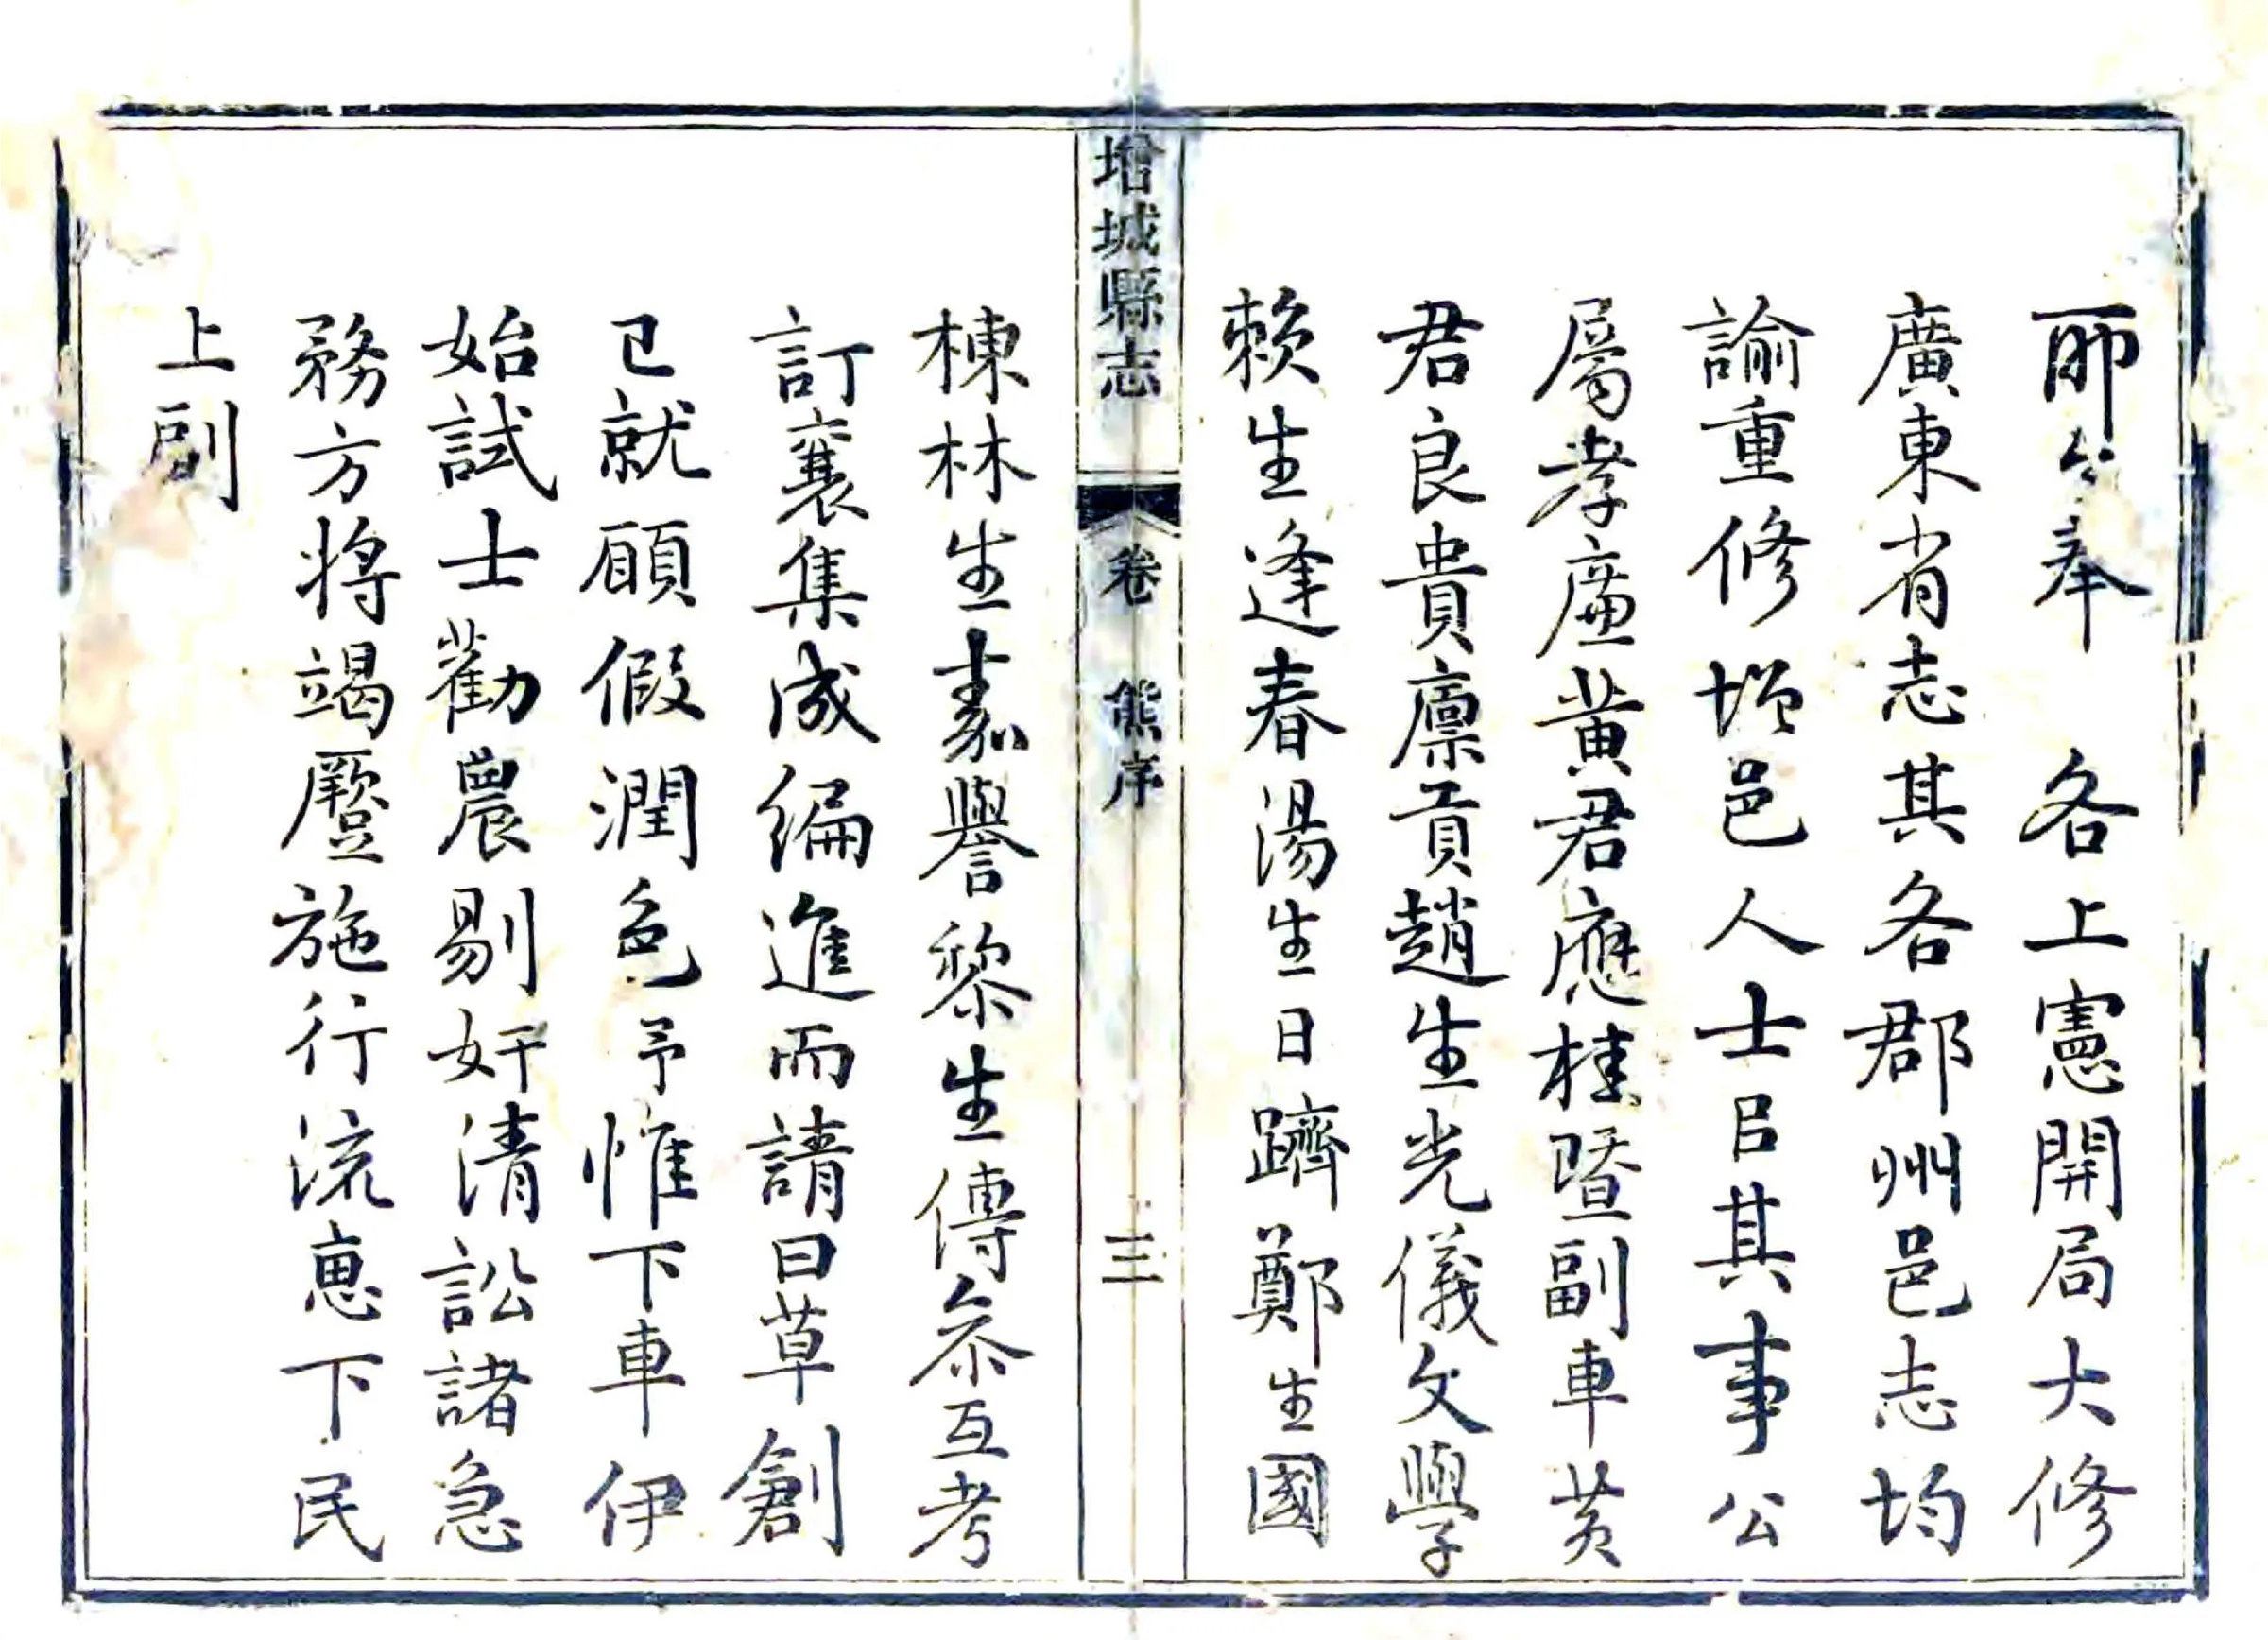 奉 各上憲開局大修
廣東省志其各郡州邑志均
諭重修增邑人士㠯其事公
屬孝廉黃君應桂暨副車黃
君良貴廩貢趙生光儀文學
賴生逢春湯生日躋鄭生國
增城縣志 卷 熊序 三
棟林生嘉譽黎生傳叅互考
訂襄集成編進而請曰草創
已就願假潤色予惟下車伊
始試士勸農剔奸清訟諸急
務方將竭蹷施行流惠下民
上副